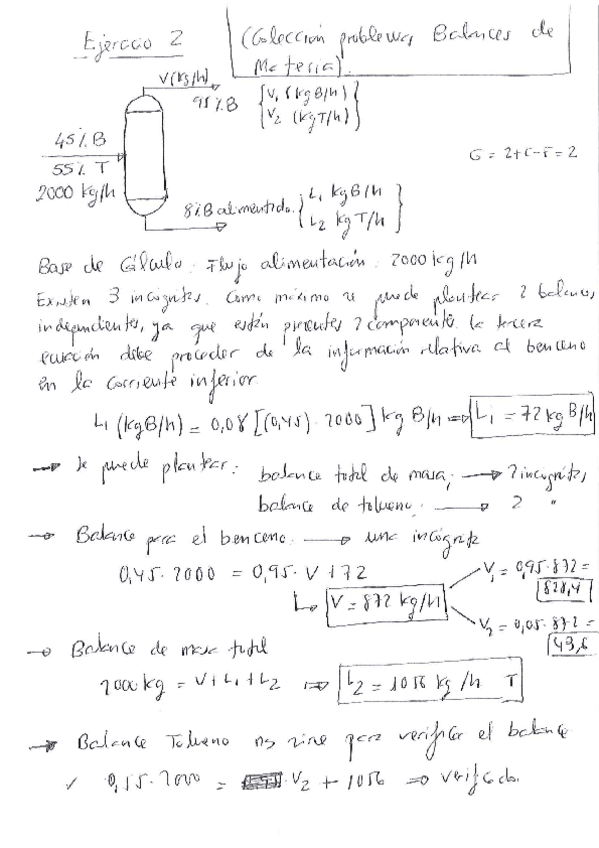 Ejercicio 2
(Colección problemas Balances de
Materia)
V(kg/h)
95% B
{V₁ (kg B/h)
V₂ (kg T/h)}
45% B
55% T
2000 kg/h
G = 2+C-F = 2
8% B alimentado {L₁ kg B/h
L₂ kg T/h}
Base de Cálculo: Flujo alimentación: 2000 kg/h
Existen 3 incógnitas. Como máximo se puede plantear 2 balances
independientes, ya que están presentes 2 componentes. La tercera
ecuación debe proceder de la información relativa al benceno
en la corriente inferior.
L₁ (kg B/h) = 0,08 [(0,45) · 2000] kg B/h ⇒ L₁ = 72 kg B/h
→ Se puede plantear: balance total de masa; → 2 incógnitas
balance de tolueno: → 2 "
→ Balance para el benceno → una incógnita
0,45 · 2000 = 0,95 · V + 72
V = 872 kg/h
V₁ = 0,95 · 872 =
828,4
V₂ = 0,05 · 872 =
43,6
→ Balance de masa total
2000 kg = V + L₁ + L₂ ⇒ L₂ = 1056 kg/h T
→ Balance Tolueno nos sirve para verificar el balance
✓ 0,55 · 2000 = V₂ + 1056 ⇒ verificado.